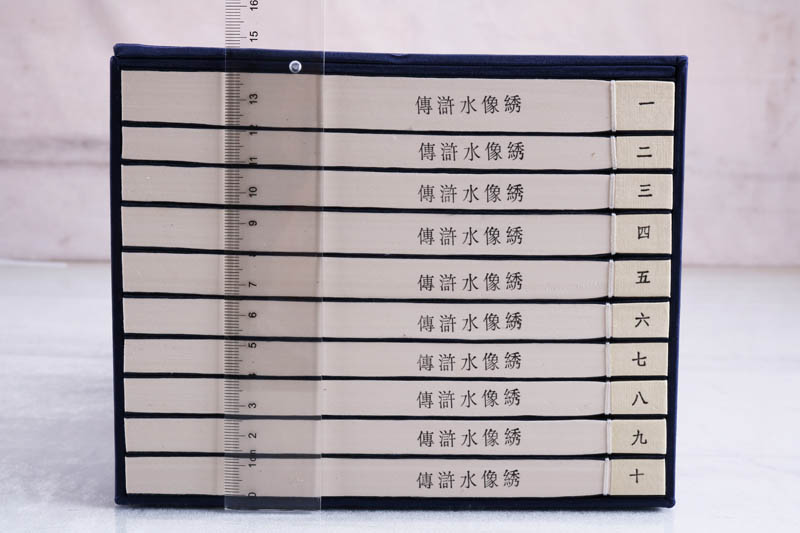 一 綉像水滸傳
二 綉像水滸傳
三 綉像水滸傳
四 綉像水滸傳
五 綉像水滸傳
六 綉像水滸傳
七 綉像水滸傳
八 綉像水滸傳
九 綉像水滸傳
十 綉像水滸傳
16
15
13
12
11
10
9
7
6
5
3
2
1cm
0